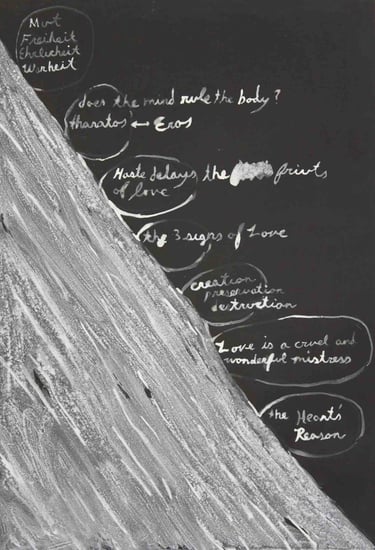 Mut
Freiheit
Ehrlicheit
Warheit
does the mind rule the body?
thanatos ↔ Eros
Haste delays the prints
of love
the 3 signs of Love
creation
preservation
destruction
Love is a cruel and
wonderful mistress
the Hearts
Reason